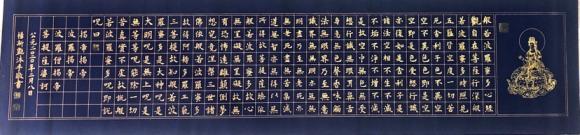 般若波羅蜜多心經
觀自在菩薩行深般
若波羅蜜多時照見
五蘊皆空度一切苦
厄舍利子色不異空
空不異色色即是空
空即是色受想行識
亦復如是舍利子是
諸法空相不生不滅
不垢不淨不增不減
是故空中無色無受
想行識無眼耳鼻舌
身意無色聲香味觸
法無眼界乃至無意
識界無無明亦無無
明盡乃至無老死亦
無老死盡無苦集滅
道無智亦無得以無
所得故菩提薩埵依
般若波羅蜜多故心
無罣礙無罣礙故無
有恐怖遠離顛倒夢
想究竟涅槃三世諸
佛依般若波羅蜜多
故得阿耨多羅三藐
三菩提故知般若波
羅蜜多是大神咒是
大明咒是無上咒是
無等等咒能除一切
苦真實不虛故說般
若波羅蜜多咒即說
咒曰
揭諦揭諦
波羅揭諦
波羅僧揭諦
菩提薩婆訶
月八日
沐手敬書